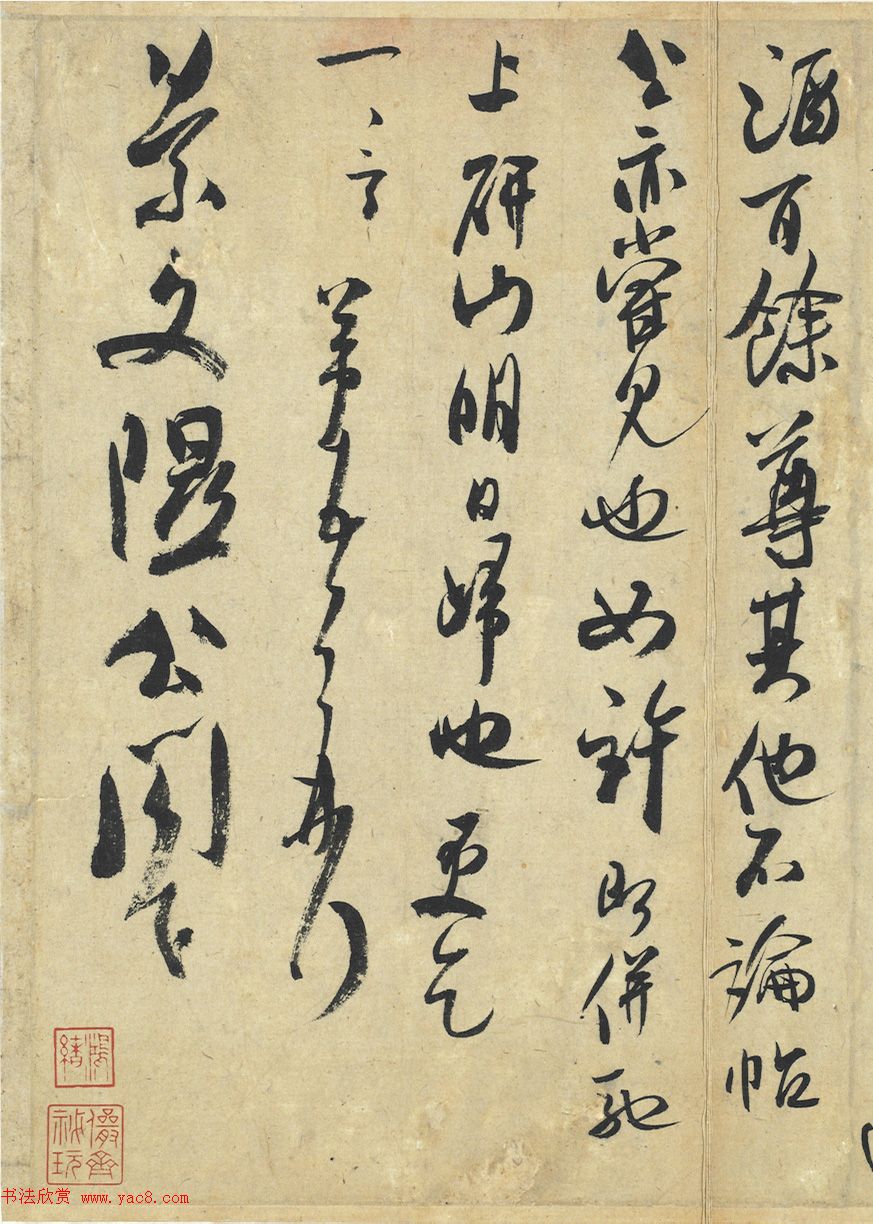 酒百餘尊其他不論帖
公亦嘗見也如許即併馳
上研山明日歸也更乞
一言芾頓首再拜
景文隰公閣下
鴻緒
儼齋祕玩
书法欣赏 www.yac8.com